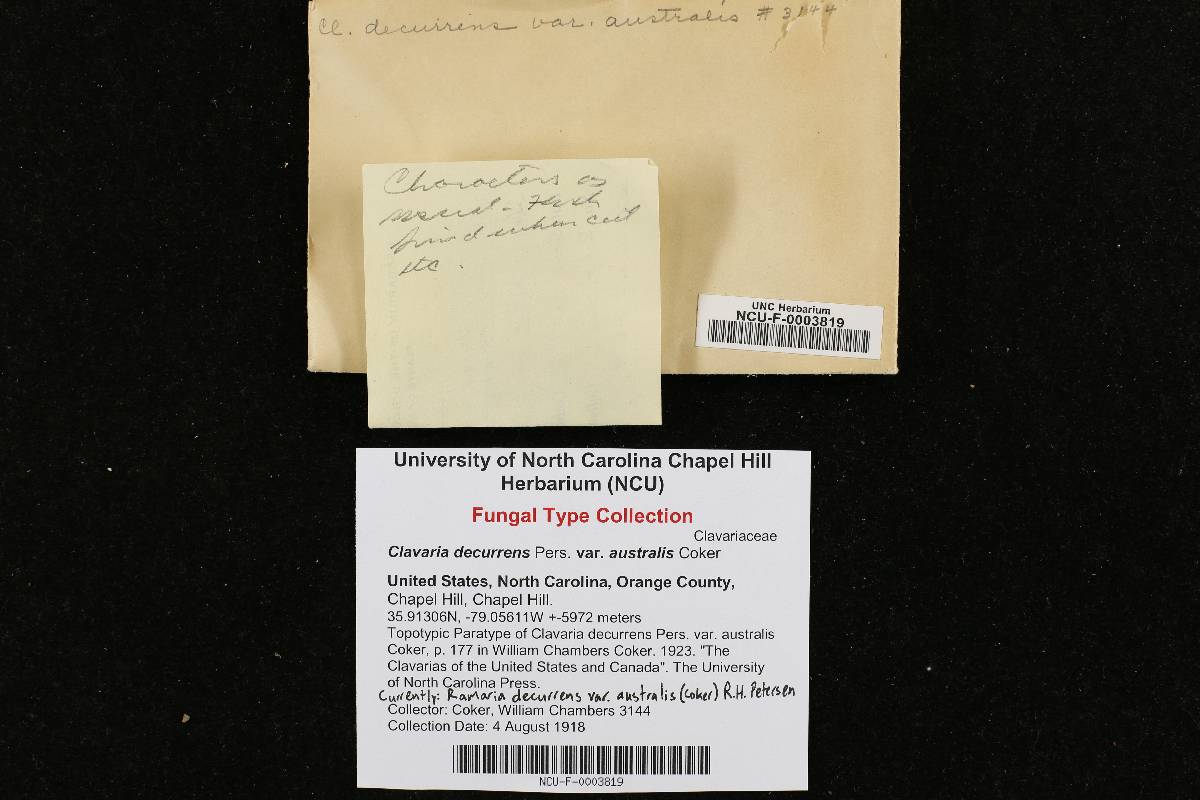 Cl. decurrens var. australis # 3144
Characters as
usual - Flesh
when cut
etc.
UNC Herbarium
NCU-F-0003819
University of North Carolina Chapel Hill
Herbarium (NCU)
Fungal Type Collection
Clavariaceae
Clavaria decurrens Pers. var. australis Coker
United States, North Carolina, Orange County,
Chapel Hill, Chapel Hill.
35.91306N, -79.05611W +-5972 meters
Topotypic Paratype of Clavaria decurrens Pers. var. australis
Coker, p. 177 in William Chambers Coker. 1923. "The
Clavarias of the United States and Canada". The University
of North Carolina Press.
Currently: Ramaria decurrens var. australis (Coker) R.H. Petersen
Collector: Coker, William Chambers 3144
Collection Date: 4 August 1918
NCU-F-0003819